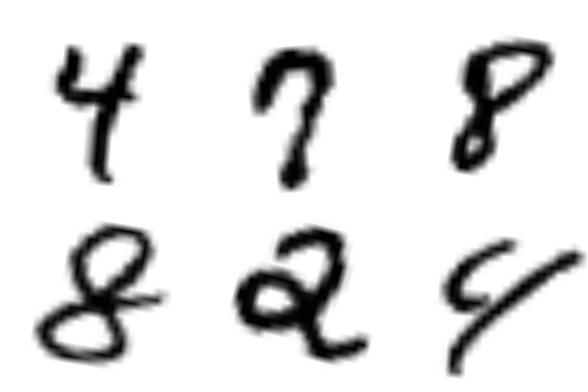 4 7 8
8 2 9